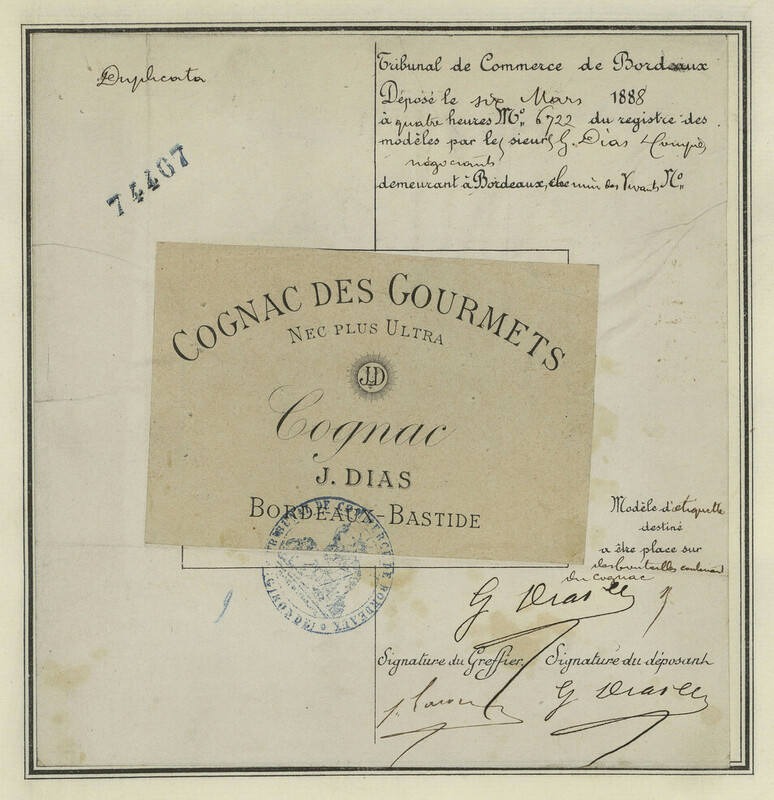 Duplicata
74467
Tribunal de Commerce de Bordeaux
Déposé le six Mars 1888
à quatre heures No. 6722 du registre des
modèles par les sieurs G. Dias & Comp
négociants
demeurant à Bordeaux, chemin des Vivants No.
COGNAC DES GOURMETS
NEC PLUS ULTRA
JD
Cognac
J. DIAS
BORDEAUX-BASTIDE
TRIBUNAL DE COMMERCE DE BORDEAUX (GIRONDE)
Modèle d'étiquette
destiné
a être place sur
des bouteilles contenant
du cognac
G Dias
Signature du Greffier. Signature du déposant
G Dias